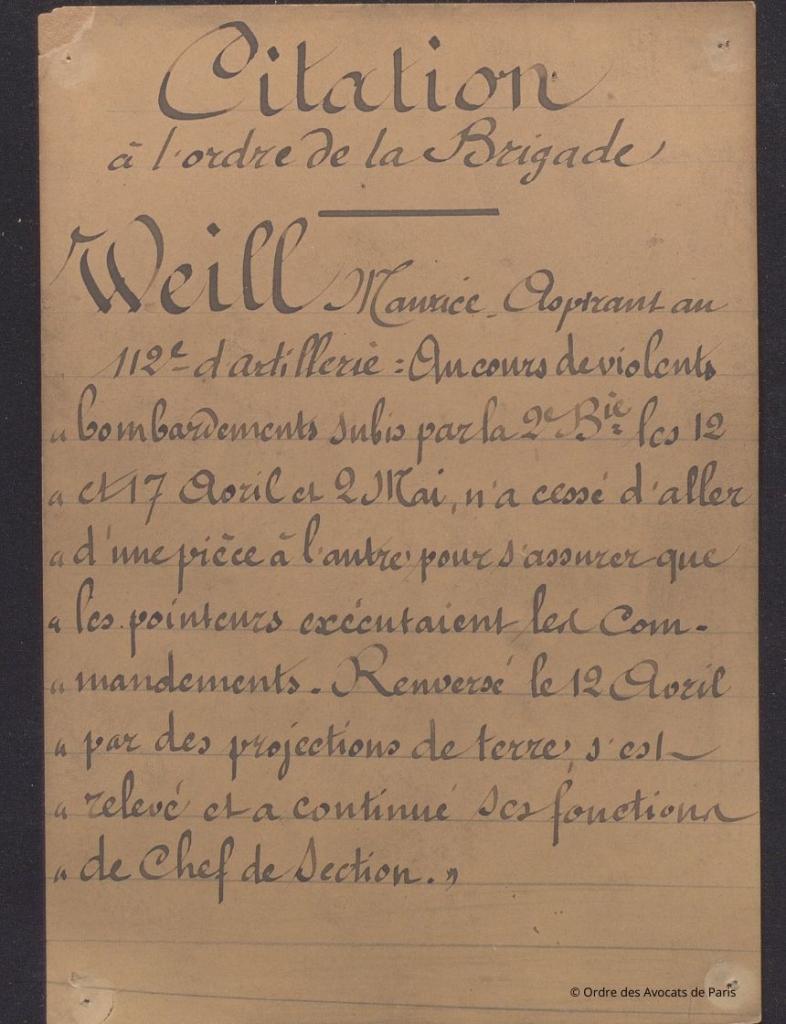 Citation
à l'ordre de la Brigade
Weill Maurice. Aspirant au
112e d'artillerie : Au cours de violents
" bombardements subis par la 2e Bie les 12
" et 17 Avril et 2 Mai, n'a cessé d'aller
" d'une pièce à l'autre pour s'assurer que
" les pointeurs exécutaient les com-
" mandements. Renversé le 12 Avril
" par des projections de terre, s'est
" relevé et a continué ses fonctions
" de Chef de Section. "
© Ordre des Avocats de Paris